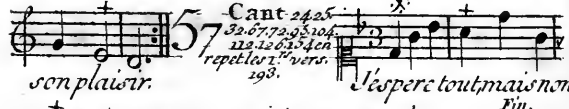 57 Cant. 24.25.
32.67.72.95.104.
112.126.134 en
repet les 1.rs vers.
193.
son plaisir. J'espere tout, mais non
Fin.